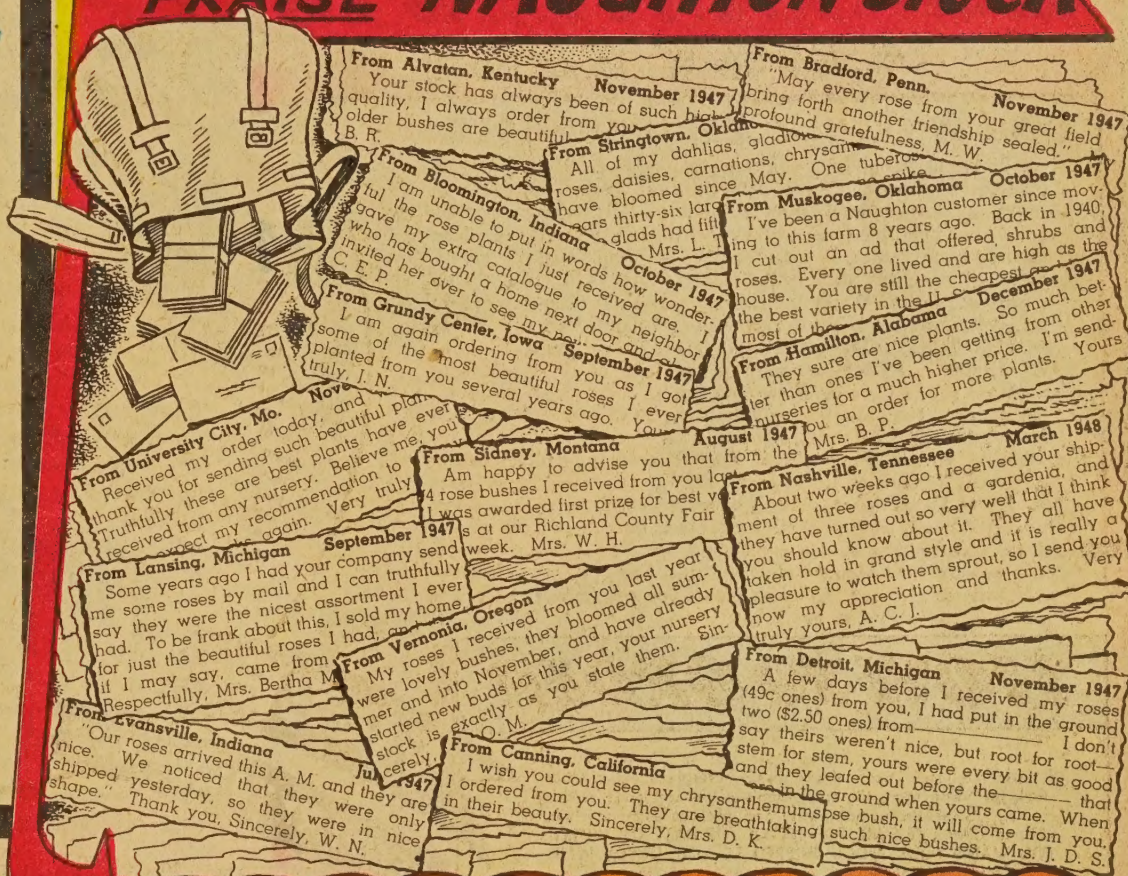 PRAISE NAUGHTON STOCK
From Alvatan, Kentucky November 1947
Your stock has always been of such high
quality, I always order from you
older bushes are beautiful
B. R.
From Bradford, Penn. November 1947
"May every rose from your great field
bring forth another friendship sealed."
profound gratefulness, M. W.
From Stringtown, Oklaho
All of my dahlias, gladio
roses, daisies, carnations, chrysan
have bloomed since May. One tuberos
ears thirty-six larg spike
glads had fift
Mrs. L. T
From Bloomington, Indiana October 1947
I am unable to put in words how wonder-
ful the rose plants I just received are. I
gave my extra catalogue to my neighbor
who has bought a home next door and
invited her over to see my
C. E. P.
From Muskogee, Oklahoma October 1947
I've been a Naughton customer since mov-
ing to this farm 8 years ago. Back in 1940,
I cut out an ad that offered shrubs and
roses. Every one lived and are high as the
house. You are still the cheapest and
the best variety in the U. S.
most of the
From Grundy Center, Iowa September 1947
I am again ordering from you as I got
some of the most beautiful roses I ever
planted from you several years ago. Yours
truly, J. N.
From Hamilton, Alabama December 1947
They sure are nice plants. So much bet-
ter than ones I've been getting from other
nurseries for a much higher price. I'm send-
ou an order for more plants. Yours
Mrs. B. P.
From University City, Mo. Nove
Received my order today, and
thank you for sending such beautiful plan
Truthfully these are best plants have ever
received from any nursery. Believe me, you
expect my recommendation to
again. Very truly
From Sidney, Montana August 1947
Am happy to advise you that from the
4 rose bushes I received from you last
I was awarded first prize for best v
s at our Richland County Fair
week. Mrs. W. H.
From Nashville, Tennessee March 1948
About two weeks ago I received your ship-
ment of three roses and a gardenia, and
they have turned out so very well that I think
you should know about it. They all have
taken hold in grand style and it is really a
pleasure to watch them sprout, so I send you
now my appreciation and thanks. Very
truly yours, A. C. J.
From Lansing, Michigan September 1947
Some years ago I had your company send
me some roses by mail and I can truthfully
say they were the nicest assortment I ever
had. To be frank about this, I sold my home
for just the beautiful roses I had, and
if I may say, came from
Respectfully, Mrs. Bertha M
From Vernonia, Oregon
My roses I received from you last year
were lovely bushes, they bloomed all sum-
mer and into November, and have already
started new buds for this year, your nursery
stock is exactly as you state them. Sin-
cerely, O. M.
From Detroit, Michigan November 1947
A few days before I received my roses
(49c ones) from you, I had put in the ground
two ($2.50 ones) from———— I don't
say theirs weren't nice, but root for root—
stem for stem, yours were every bit as good
and they leafed out before the———— that
ose in the ground when yours came. When
ose bush, it will come from you,
such nice bushes. Mrs. J. D. S.
From Evansville, Indiana July 1947
"Our roses arrived this A. M. and they are
nice. We noticed that they were only
shipped yesterday, so they were in nice
shape." Thank you, Sincerely, W. N.
From Canning, California
I wish you could see my chrysanthemums
I ordered from you. They are breathtaking
in their beauty. Sincerely, Mrs. D. K.